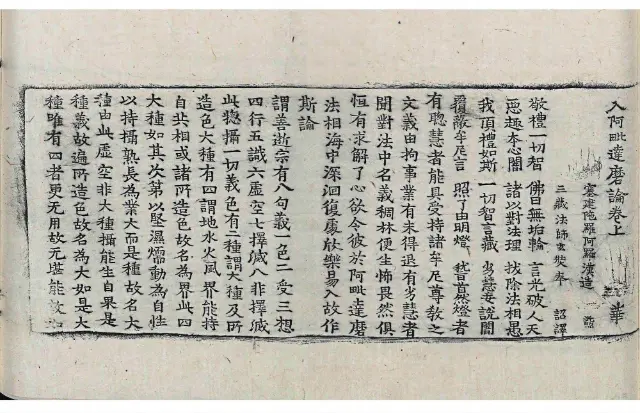 入阿毗達磨論卷上 華
塞建陁羅阿羅漢造
三藏法師玄奘奉 詔譯
敬禮一切智 佛日無垢輪 言光破人天
惡趣本心闇 諸以對法理 拔除法相愚
我頂禮如斯 一切智言藏 劣慧妄說闇
覆蔽牟尼言 照了由明燈 燈者
有聰慧者能具受持諸牟尼尊教之
文義由拘事業有未得退有劣慧者
聞對法中名義稠林便生怖畏然俱
恒有求解了心欲令彼於阿毗達磨
法相海中深洄澓處欣樂易入故作
斯論
謂善逝宗有八句義一色二受三想
四行五識六虛空七擇滅八非擇滅
此惣攝一切義色有二種謂大種及所
造色大種有四謂地水火風界能持
自共相或諸所造色故名為界此四
大種如其次第以堅濕煖動為自性
以持攝熟長為業大而是種故名大
種由此虛空非大種攝能生自果是
種義故遍所造色故名為大如是大
種唯有四者更无用故无堪能故如